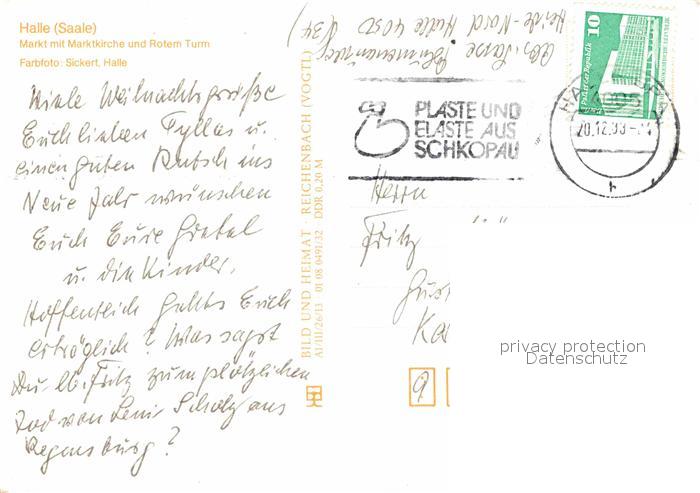 Halle (Saale)
Markt mit Marktkirche und Rotem Turm
Farbfoto: Sickert, Halle
Viele Weihnachtsgrüße
Euch lieben Tyllas u.
einen guten Rutsch ins
Neue Jahr wünschen
Euch Eure Gretel
u. die Kinder.
Hoffentlich geht's Euch
erträglich? Was sagst
Du lb. Fritz zum plötzlichen
Tod von Leni Scholz aus
Regensburg?
BILD UND HEIMAT · REICHENBACH (VOGTL)
A1/III/26/13 01 08 0491/32 DDR 0,20 M
Heide-Nord Halle 4050
10
PLASTE UND
ELASTE AUS
SCHKOPAU
HALLE
4095
20.12.
Herrn
Fritz
9
privacy protection
Datenschutz